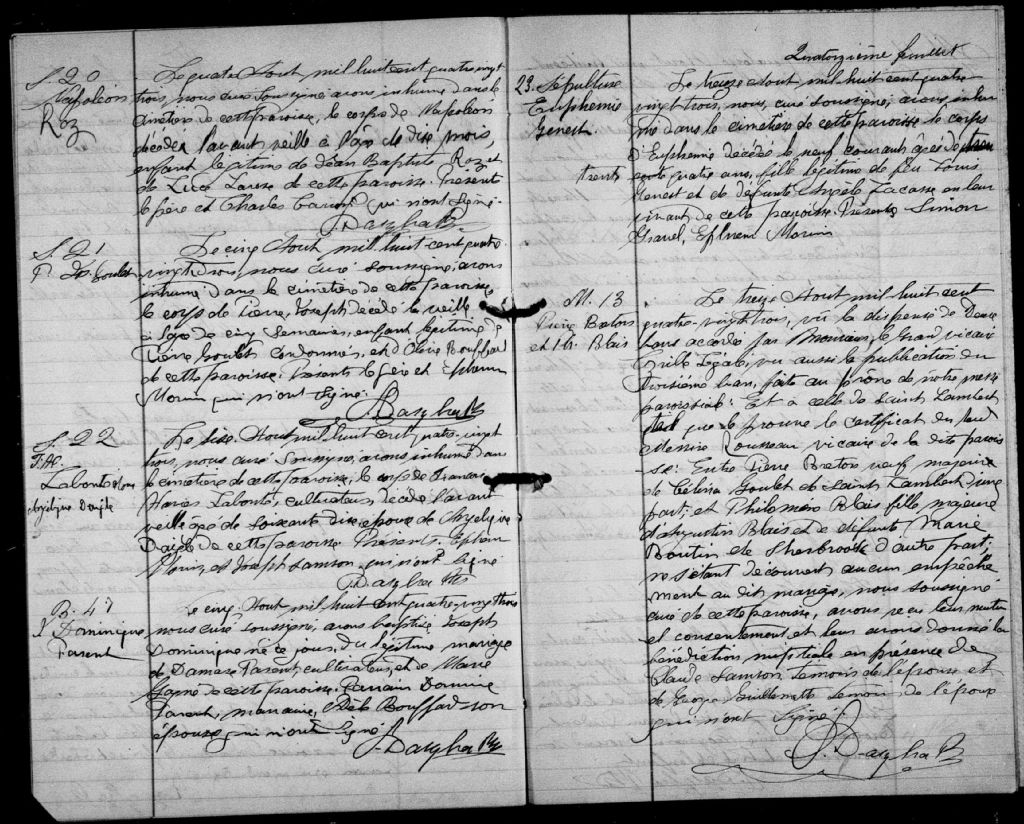 S. 20
Napoléon
Roz
Le quatre Aout mil huit cent quatre vingt
trois, nous curé soussigné avons inhumé dans le
cimetière de cette paroisse, le corps de Napoléon
décédé l'avant veille à l'âge de dix mois,
enfant légitime de Jean Baptiste Roz et
de de cette paroisse. Présents
le père et Charles qui n'ont signé.
S. 21
P. Jos. Goulet
Le cinq Aout mil huit cent quatre-
vingt trois, nous curé soussigné, avons
inhumé dans le cimetière de cette paroisse
le corps de Pierre, Joseph décédé la veille
à l'age de cinq semaines, enfant légitime de
Pierre Goulet cordonnier, et d'Olive Bouffard
de cette paroisse. Présents le père et Ephrem
Morin qui n'ont signé.
S. 22
Labonté
Angélique Daigle
Le six Aout mil huit cent quatre-vingt
trois, nous curé soussigné, avons inhumé dans
le cimetière de cette paroisse, le corps de
Labonté, cultivateur, décédé l'avant
veille agé de soixante dix époux de Angélique
Daigle de cette paroisse Présents. Ephrem
Morin, et Joseph Samson qui n'ont signé
B. 47
J. Dominique
Parent
Le cinq Aout mil huit cent quatre-vingt trois
nous curé soussigné, avons baptisé Joseph
Dominique né ce jour, du légitime mariage
de Damase Parent, cultivateur, et de Marie
Gagné de cette paroisse. Parrain
Parent, marraine, Bouffard son
épouse qui n'ont signé
Quatorzième feuillet
23. Sépulture
Euphemie
Genest.
trente
Le treize Aout mil huit cent quatre-
vingt trois, nous, curé soussigné, avons inhu-
mé dans le cimetière de cette paroisse le corps
d'Euphemie décédée le neuf courant agée de
quatre ans, fille légitime de feu Louis
Genest et de défunte Angèle Lacasse en leur
vivant de cette paroisse. Présents Simon
Gravel, Ephrem Morin
M. 13
Pierre Breton
et Ph. Blais
Le treize Aout mil huit cent
quatre-vingt trois, vu la dispense de deux
bans accordée par Monsieur, le Grand vicaire
Cyrille Légaré, vu aussi la publication du
troisième ban, faite au prône de notre messe
paroissiale: Et à celle de Saint Lambert
que le prouve le certificat du
Messire Rousseau vicaire de la dite parois
se: Entre Pierre Breton veuf majeur
de Célina Goulet de Saint Lambert d'une
part; et Philomène Blais fille, majeure
d'Augustin Blais et de défunte Marie
Boutin de Sherbrooke d'autre part;
ne s'étant découvert aucun empêche
ment au dit mariage, nous soussigné
curé de cette paroisse, avons reçu leur mutuel
et consentement et leur avons donné la
bénédiction nuptiale en présence de
Claude Samson témoin de l'épouse et
de George Guillemette témoin de l'époux
qui n'ont signé.